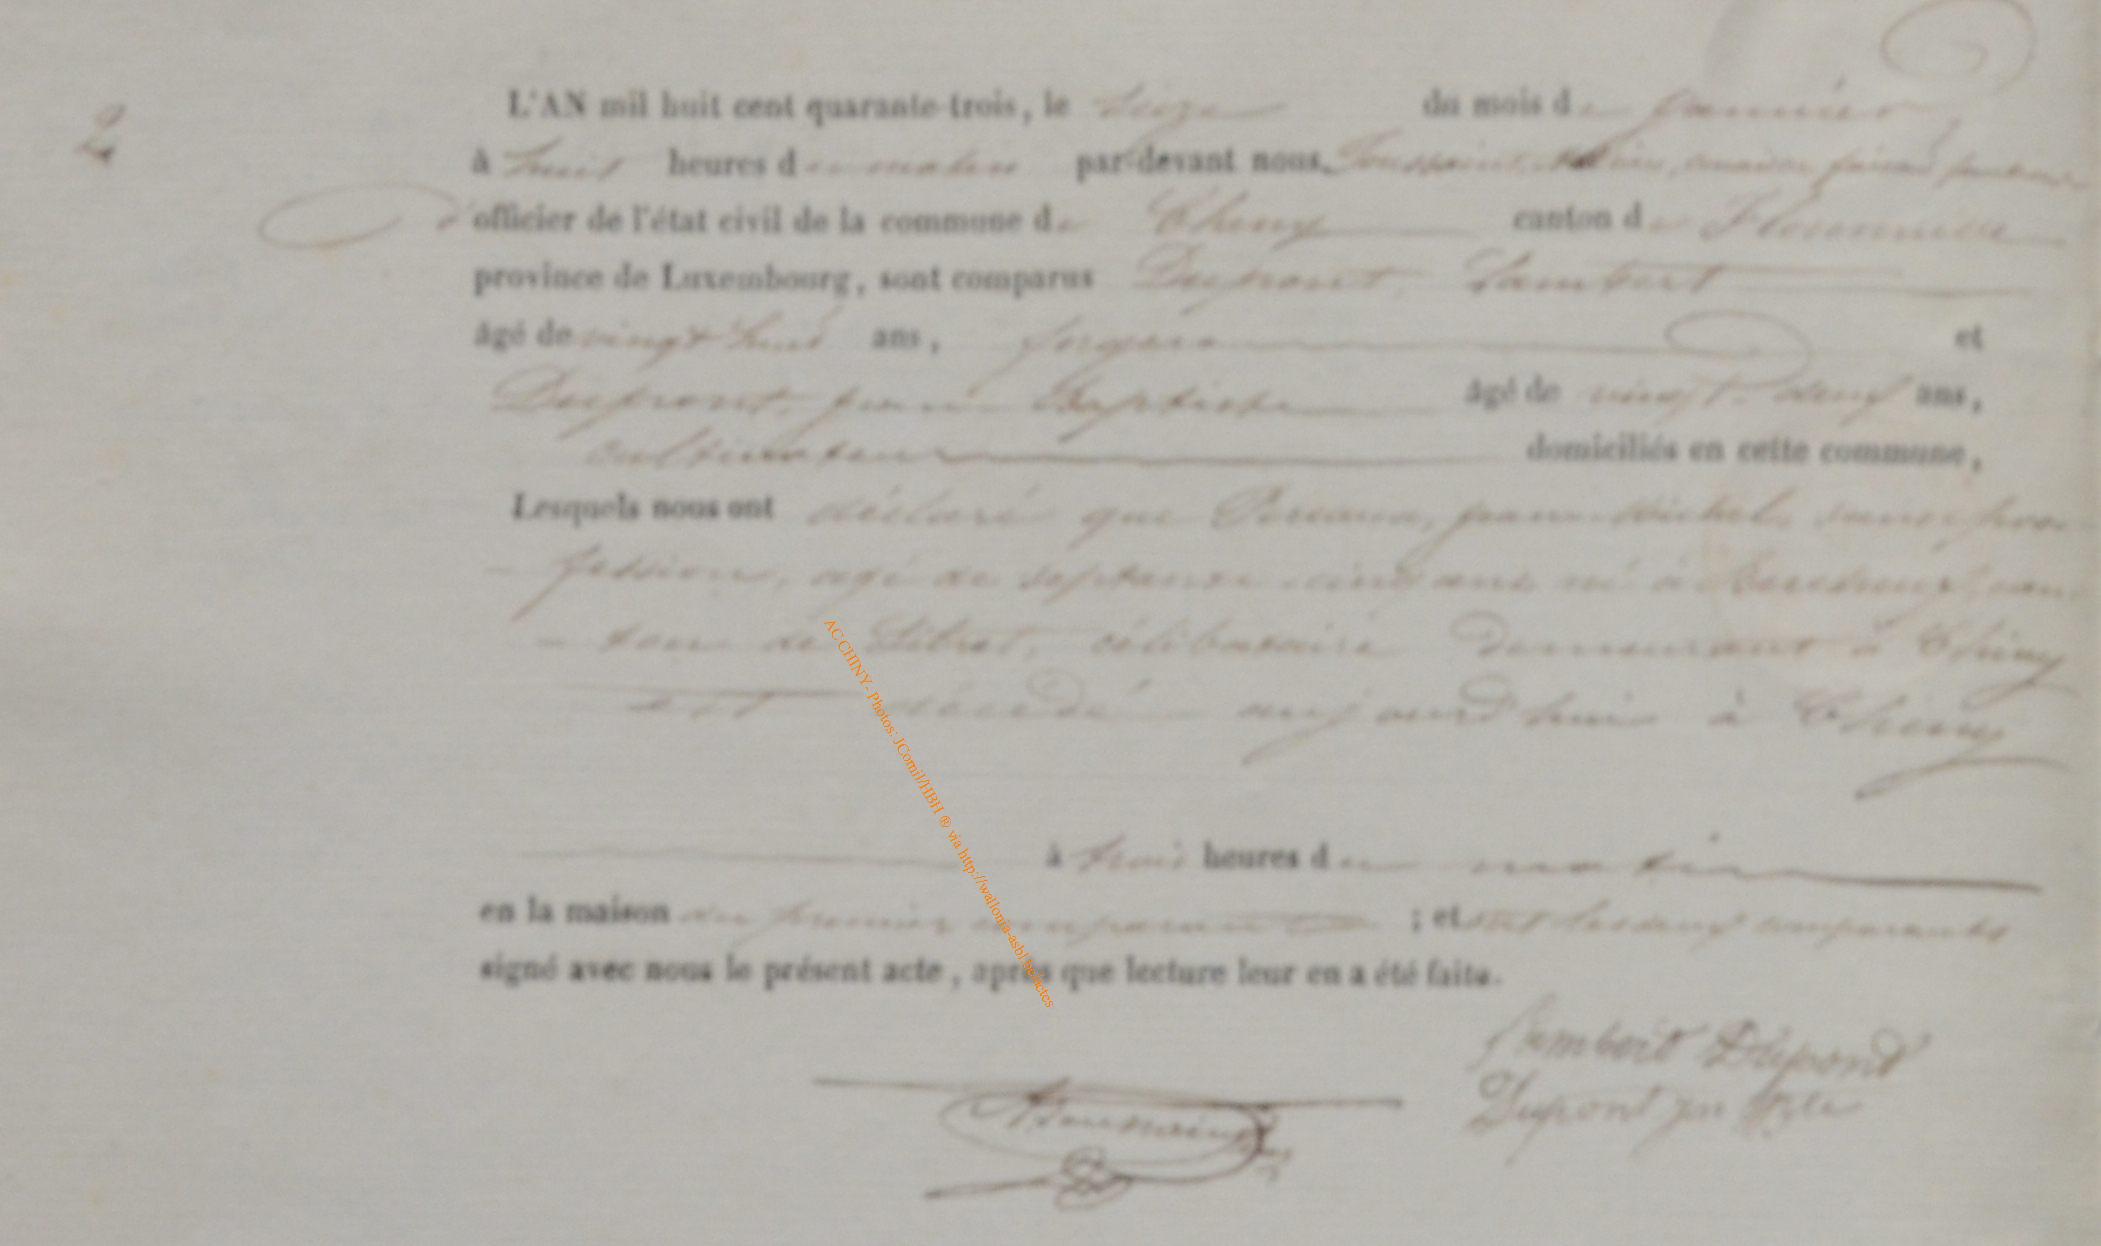 2
L'AN mil huit cent quarante-trois, le seize du mois de janvier
à huit heures du matin par-devant nous Toussaint, faisant
officier de l'état civil de la commune de Chiny canton de Florenville
province de Luxembourg, sont comparus Dupont, Lambert
âgé de vingt huit ans, forgeron et
Dupont, jean Baptiste âgé de vingt-deux ans,
cultivateur domiciliés en cette commune,
Lesquels nous ont déclaré que jean Michel, sans pro-
- fession, agé de septante cinq ans né à can-
- ton de Sibret, célibataire demeurant à Chiny
est décédé aujourd'hui à Chiny
à trois heures du matin
en la maison du premier comparant ; et ont les deux comparants
signé avec nous le présent acte, après que lecture leur en a été faite.
Lambert Dupond
Dupont jn Bte
Toussaint
AC CHINY- Photos: JCornil/HBH ® via http://wallonia-asbl.be/actes